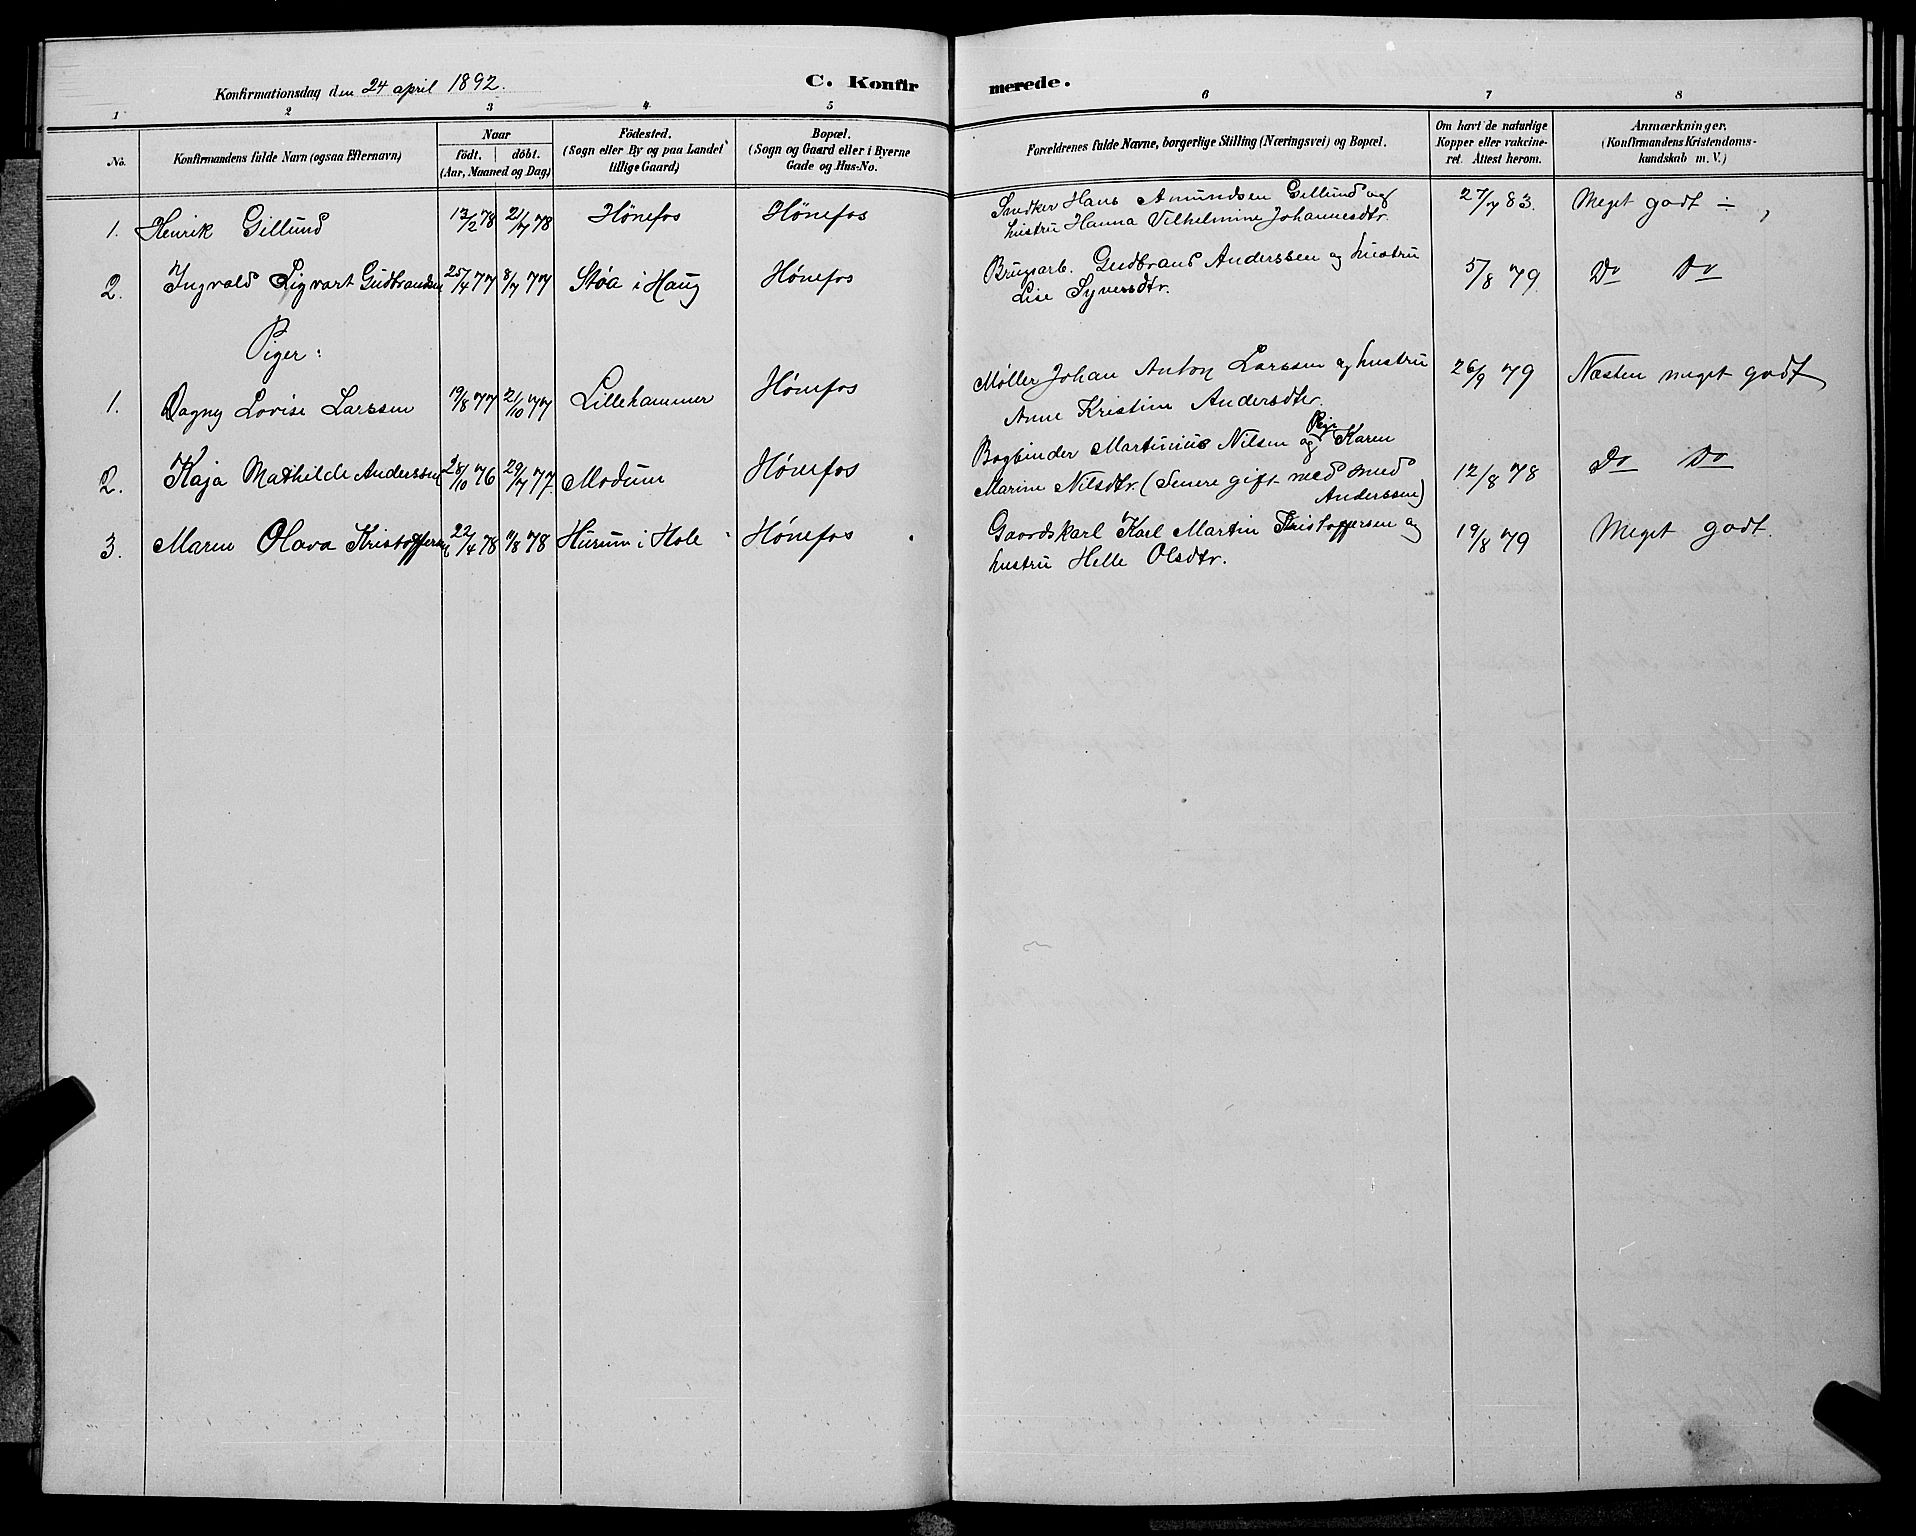 Konfirmationsdag den 24 april 1892. C. Konfirmerede.
1 2 3 4 5 6 7 8
No. Konfirmandens fulde Navn (ogsaa Efternavn) Naar födt. döbt. (Aar, Maaned og Dag) Födested. (Sogn eller By og paa Landet tillige Gaard) Bopæl. (Sogn og Gaard eller i Byerne Gade og Hus-No. Forældrenes fulde Navne, borgerlige Stilling (Næringsvei) og Bopæl. Om havt de naturlige Kopper eller vakcineret. Attest herom. Anmærkninger. (Konfirmandens Kristendomskundskab m. V.)
1. Henrik Gillund 13/2 78 21/7 78 Hønefos Hønefos Snedker Hans Amundsen Gillund og 27/7 83. Meget godt ÷
hustru Hanna Vilhelmine Johannesdtr.
2. Ingvald Sigvart Gudbrandsen 25/4 77 8/7 77 Støa i Haug Hønefos Brugsarb. Gudbrand Anderssen og hustru 5/8 79. Do Do
Lise Syversdtr.
Piger:
1. Dagny Lovise Larssen 19/8 77 21/10 77 Lillehammer Hønefos Møller Johan Anton Larssen og hustru 26/9 79 Næsten meget godt
Anne Kristine Andersdtr.
2. Kaja Mathilde Anderssen 28/10 76 29/7 77. Modum Hønefos Bogbinder Martinius Nilsen og Pige Karen 12/8 78 Do Do
Marine Nilsdtr. (Senere gift med smed
Anderssen)
3. Maren Olava Kristoffersen 22/4 78 11/8 78 Hurum i Hole Hønefos Gaardskarl Karl Martin Kristoffersen og 19/8 79 Meget godt.
hustru Helle Olsdtr.